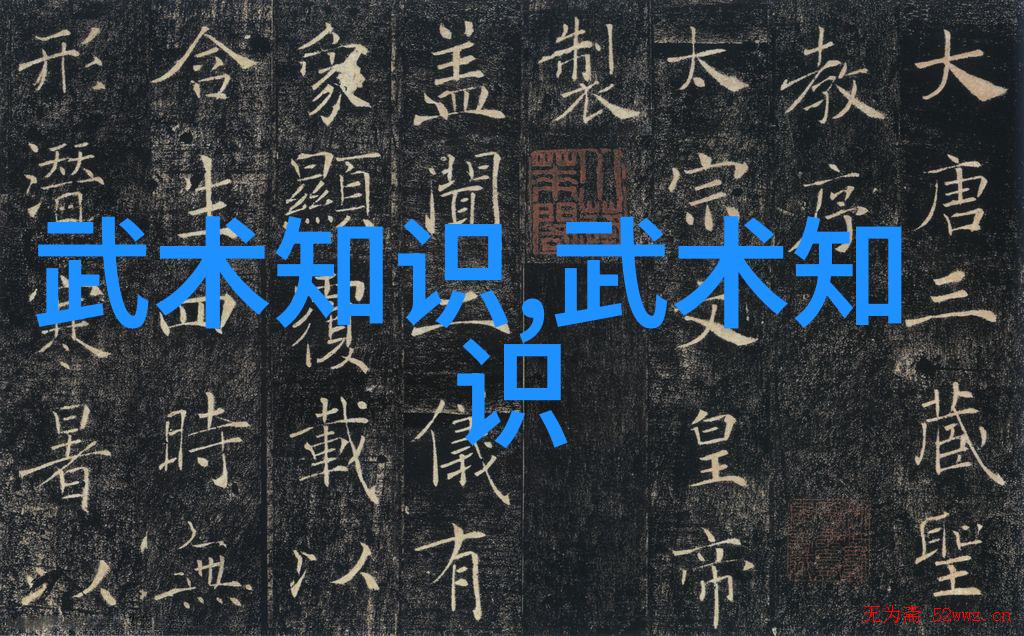 大唐三蔵聖
教序
太宗文皇帝
製
盖聞二儀有
象顯覆載以
含生四時無
形潛寒暑以
武术知识,武术知
识
无为斋 52wwz.cn